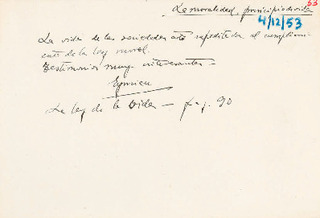 53
La moralidad, principio de vida
4/12/53
La vida de las sociedades está supeditada al cumplimi-
ento de la ley moral.
Testimonios muy interesantes
La ley de la vida — pág. 90